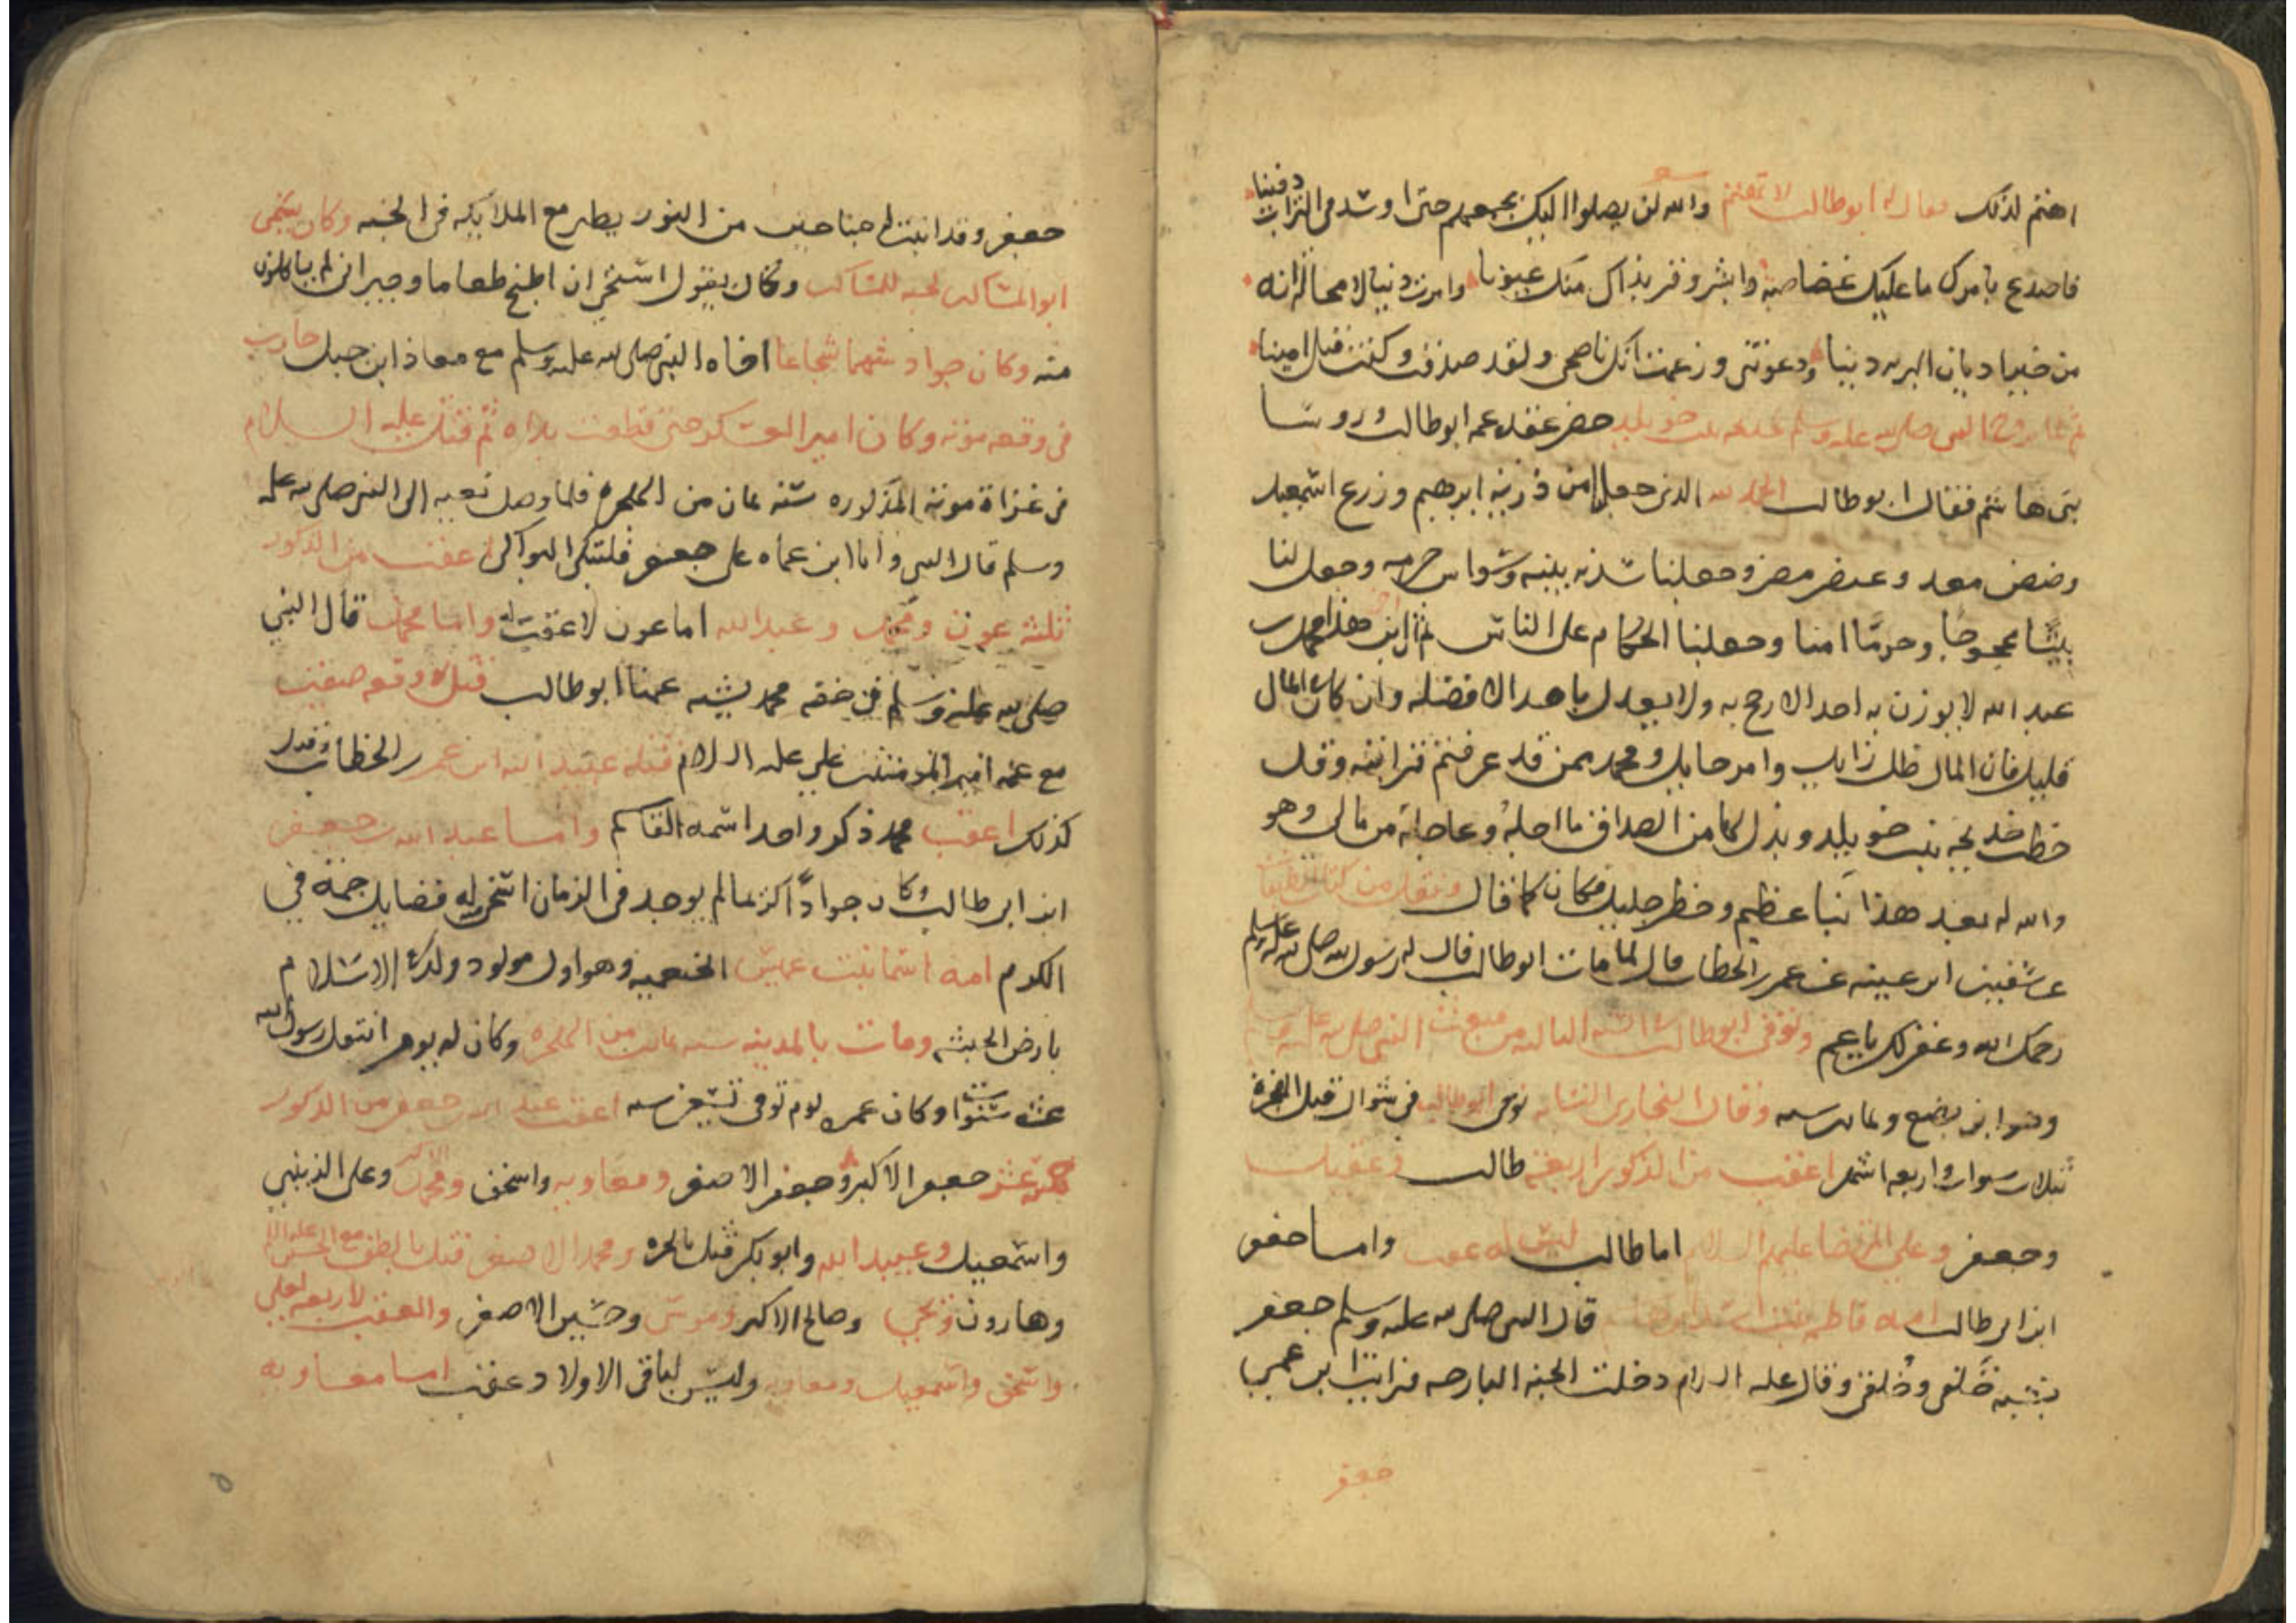 اهتم لذلك فقال له ابو طالب لا تهتم والله لن يصلوا اليك بجمعهم حتى اوسد في التراب دفينا
فاصدع بامرك ما عليك غضاضة وابشر وقر بذاك منك عيونا وامرت دينا لا محالة انه
من خير اديان البريه دينا ودعوتني وزعمت انك ناصحي ولقد صدقت وكنت قبل امينا
ثم لما تزوج النبي صلى الله عليه وسلم خديجه بنت خويلد حضر عقده عمه ابو طالب وروسا
بني هاشم فقال ابو طالب الحمد لله الذي جعلنا من ذرية ابرهيم وزرع اسمعيل
وضئضئ معد وعنصر مضر وجعلنا سدنه بيته وسواس حرمه وجعل لنا
بيتا محجوجا وحرما امنا وجعلنا الحكام على الناس ثم ان ابن اخي هذا محمد بن
عبد الله لا يوزن به احد الا رجح به ولا يعدل باحد الا فضله وان كان المال
قليل فان المال ظل زايل وامر حايل ومحمد ممن قد عرفتم قرابته وقد
خطب خديجه بنت خويلد وبذل لها من الصداق ما اجله وعاجله من مالي وهو
والله له بعد هذا نبا عظيم وخطر جليل فكان كما قال ونقل من كتاب
عن سفين ابن عيينه عن عمر بن الخطاب قال لما مات ابو طالب قال له رسول الله صلى الله عليه وسلم
رحمك الله وغفر لك يا عم وتوفي ابو طالب السنه من مبعث النبي صلى الله عليه وسلم
وهو ابن بضع وثمانين سنه وقال البخاري توفي ابو طالب في شوال قبل الهجرة
بثلاث سنوات واربعه اشهر اعقب من الذكور اربعة طالب وعقيل
وجعفر وعلي المرتضا عليهم السلام اما طالب ليس له عقب واما جعفر
ابن ابي طالب امه فاطمه بنت اسد بن هاشم قال النبي صلى الله عليه وسلم جعفر
يشبه خَلقي وخُلقي وقال عليه السلام دخلت الجنه البارحه فرايت ابن عمي
جعفر
جعفر وقد انبت له جناحين من النور يطير مع الملايكه في الجنه وكان يسمى
ابو المساكين لحبه للمساكين وكان يقول استحي ان اطبخ طعاما وجيراني لم ياكلون
منه وكان جواد شهما شجاعا اخاه النبي صلى الله عليه وسلم مع معاذ ابن جبل حارب
في وقعه موته وكان امير العسكر حتى قطعت يداه ثم قتل عليه السلام
في غزاة موته المذكوره سنه ثمان من الهجره فلما وصل نعيه الى النبي صلى الله عليه
وسلم قال النبي وا ابن عماه على جعفر فلتبكي البواكي اعقب من الذكور
ثلثه عون ومحمد وعبد الله اما عون لا عقب له واما محمد قال النبي
صلى الله عليه وسلم في حقه محمد يشبه عمنا ابو طالب قتل في وقعه صفين
مع عمه امير المومنين علي عليه السلام قتله عبيد الله ابن عمر بن الخطاب وقتل
كذلك اعقب محمد ذكر واحد اسمه القاسم واما عبد الله بن جعفر
ابن ابي طالب وكان جوادا كريما لم يوجد في الزمان اسخى منه له فضايل جمة في
الكرم امه اسما بنت عميس الخثعميه وهو اول مولود ولد في الاسلام
بارض الحبشه ومات بالمدينه سنه ثمانين من الهجره وكان له يوم انتقل رسول الله
عشر سنوات وكان عمره يوم توفي تسعين سنه اعقب عبد الله بن جعفر من الذكور
خمسة عشر جعفر الاكبر وجعفر الاصغر ومعاويه واسحق ومحمد الاكبر وعلي الزينبي
واسمعيل وعبيد الله وابو بكر قتل بالحره ومحمد الاصغر قتل بالطف مع الحسين عليه السلام
وهارون ويحيى وصالح الاكبر وموسى وحسين الاصغر والعقب لاربعه لعلي
واسحق واسمعيل ومعاويه وليس لباقي الاولاد عقب اما معاويه